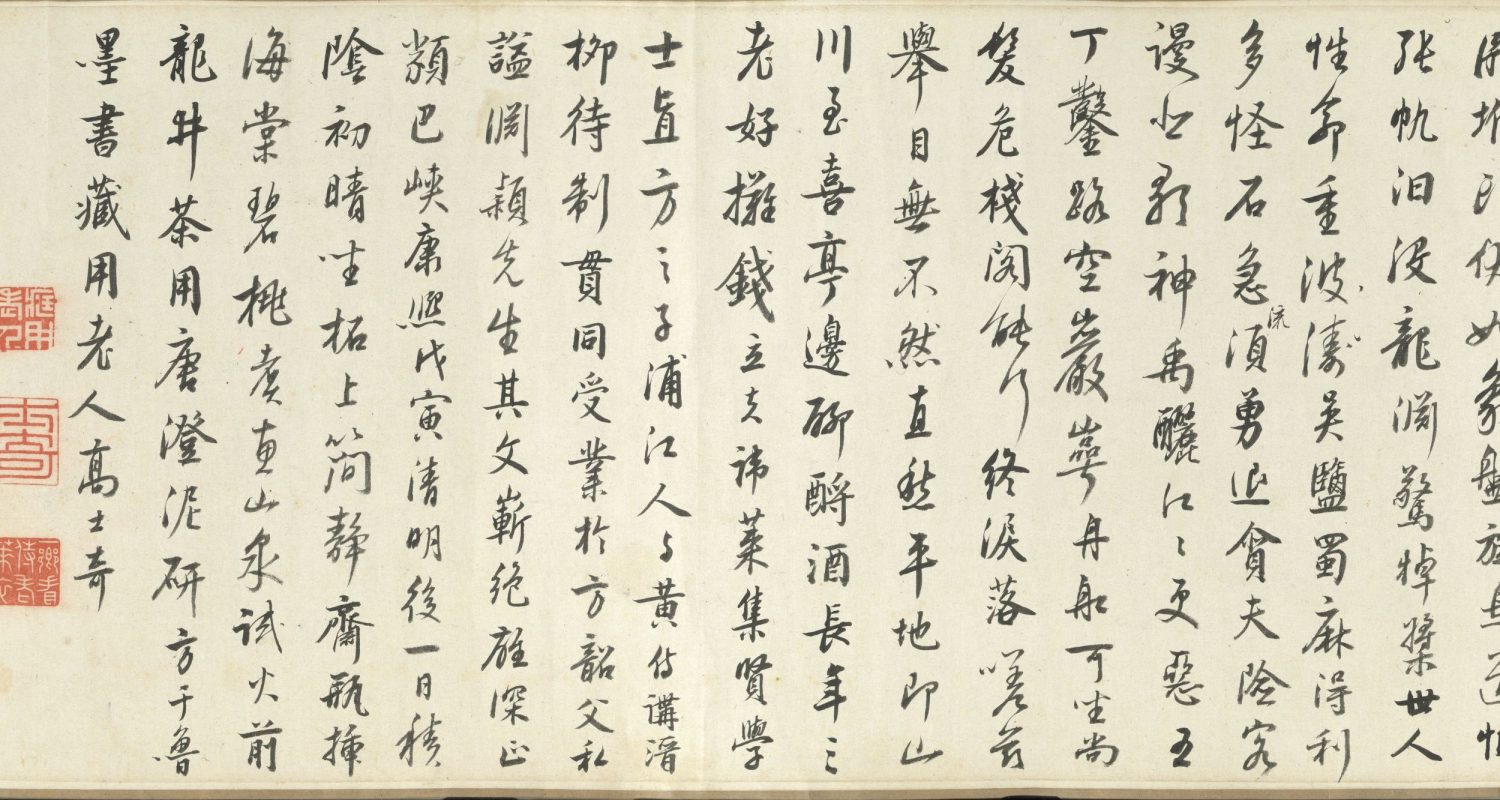 如象盤旋且
張帆汨沒龍淵驚棹槳世人
性命重波濤吳鹽蜀麻得利
多怪石急流須勇退貪夫險客
謾神禹釃江江更惡五
丁鑿路空巖崿舟船可坐尚
髮危棧閣能行終淚落嗟茲
舉目無不然直愁平地即山
川至喜亭邊聊酹酒長年三
老好攤錢立夫諱萊集賢學
士直方之子浦江人与黃侍講溍
柳待制貫同受業於方韶父私
謚淵穎先生其文嶄絕雄深正
類巴峽康熙戊寅清明後一日積
陰初晴坐柘上簡靜齋瓶插
海棠碧桃煮惠山泉試火前
龍井茶用唐澄泥研方于魯
墨書藏用老人高士奇